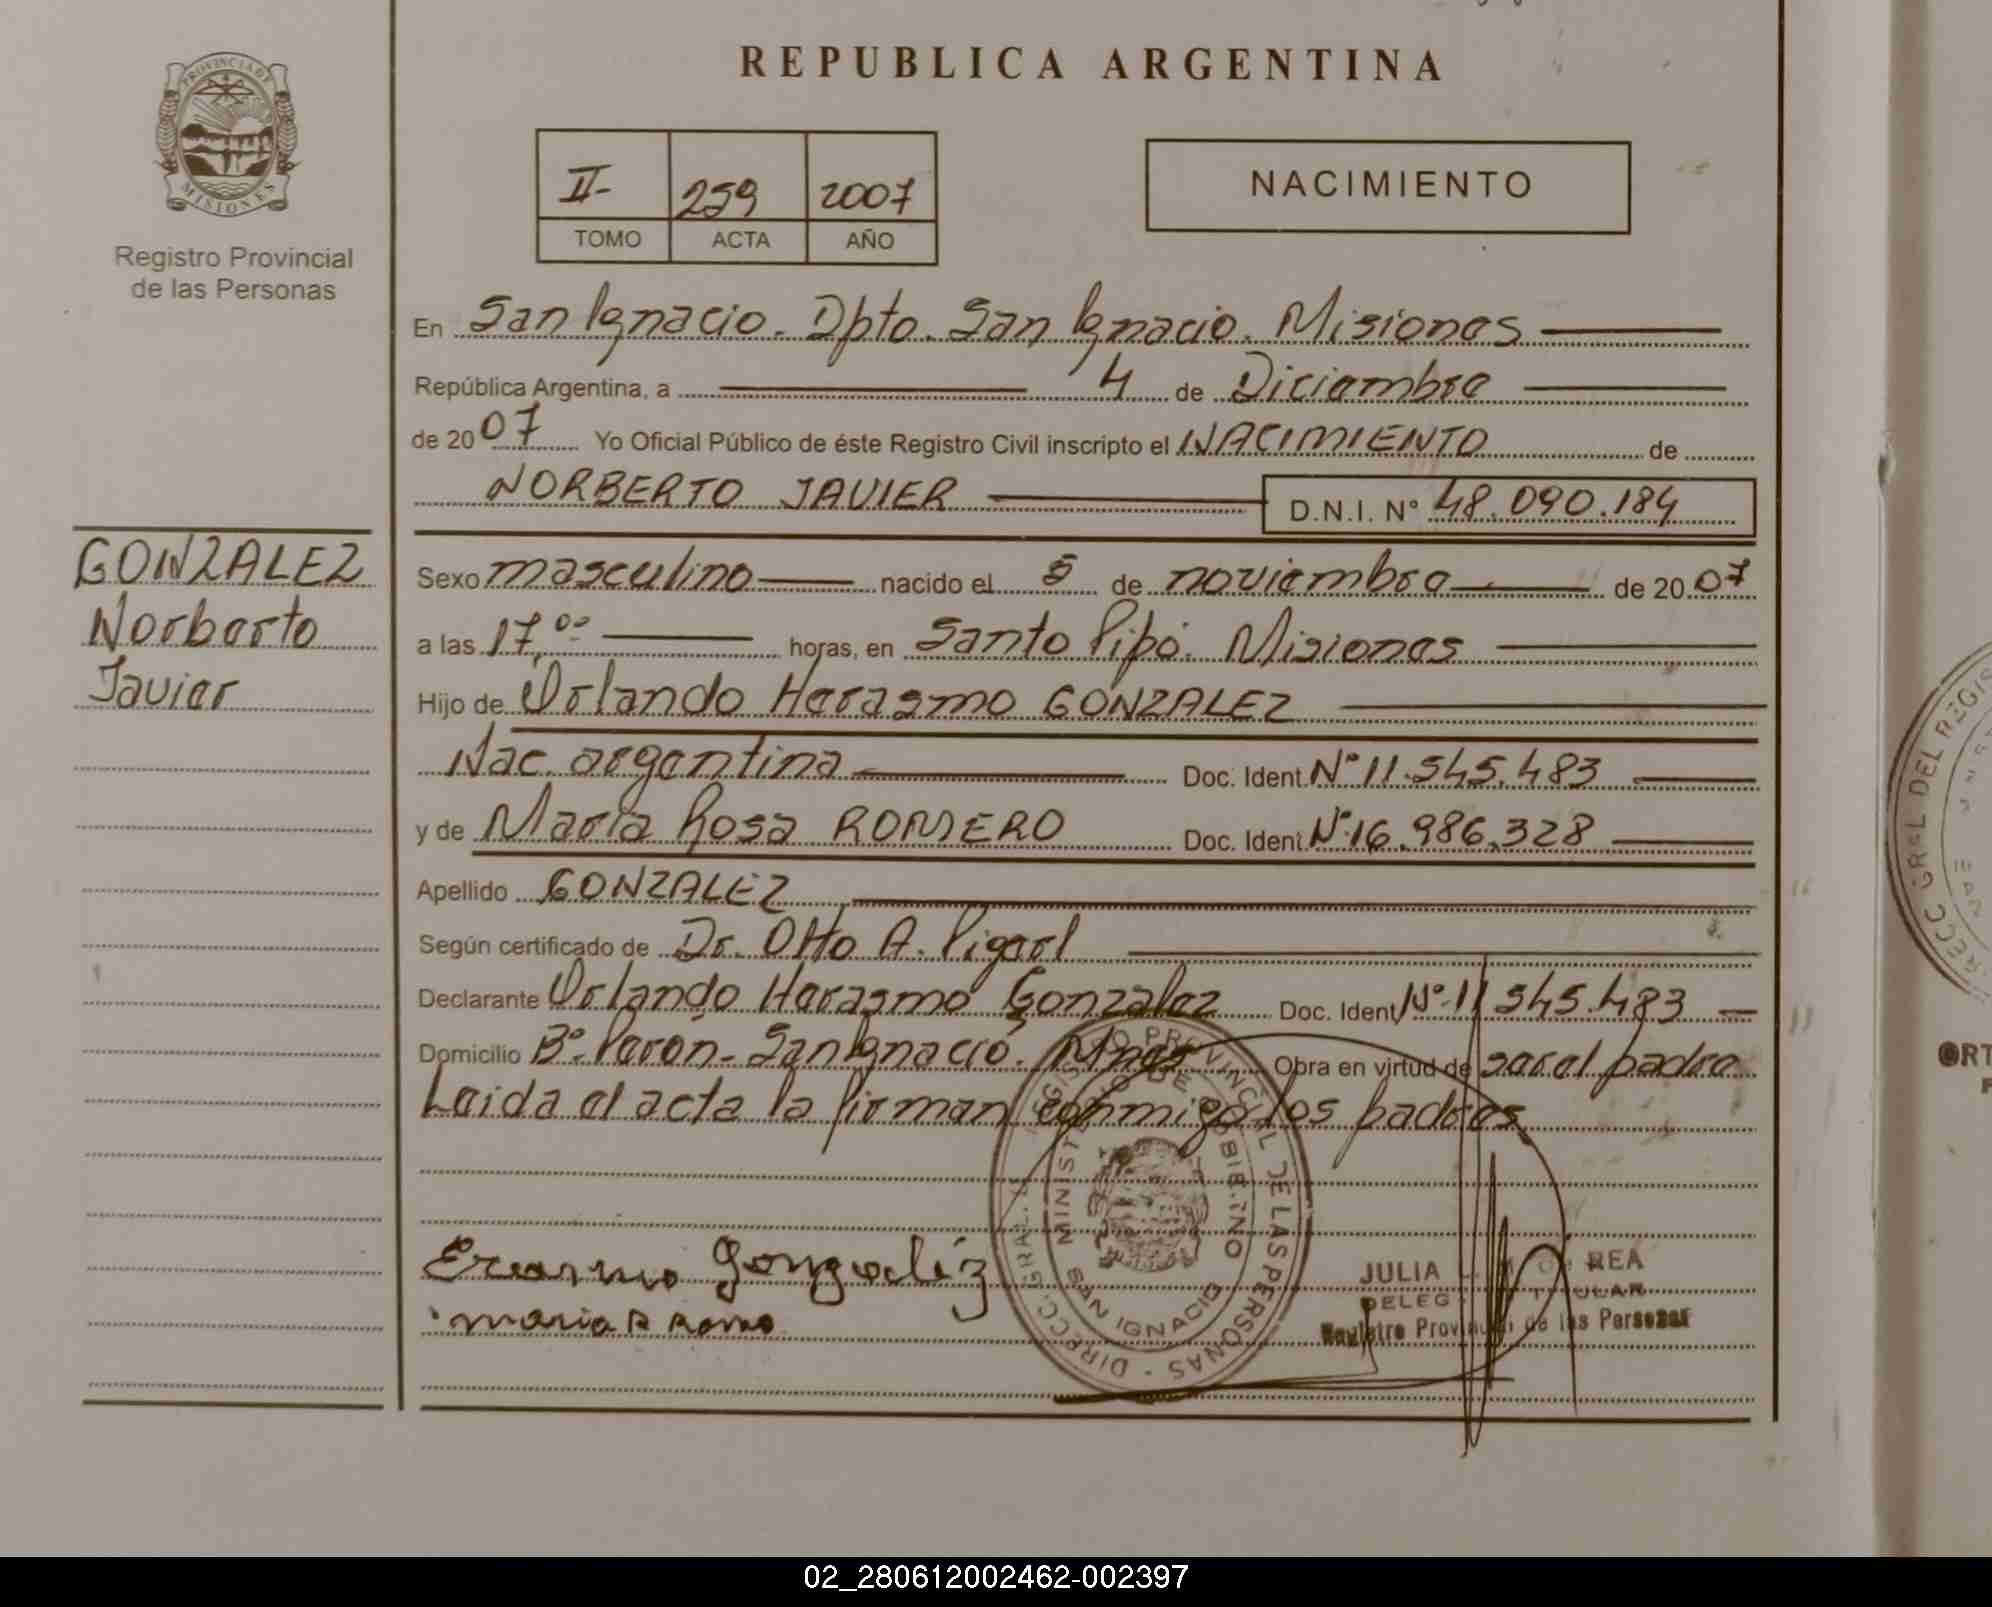 REPUBLICA ARGENTINA
PROVINCIA DE
MISIONES
Registro Provincial
de las Personas
II- 259 2007
TOMO ACTA AÑO
NACIMIENTO
En San Ignacio. Dpto. San Ignacio. Misiones
República Argentina, a 4 de Diciembre
de 2007 Yo Oficial Público de éste Registro Civil inscripto el NACIMIENTO de
NORBERTO JAVIER D.N.I. N° 48.090.184
GONZALEZ
Norberto
Javier
Sexo masculino nacido el 5 de noviembre de 2007
a las 17,00 horas, en Santo Pipó. Misiones
Hijo de Orlando Herasmo GONZALEZ
Nac. argentina Doc. Ident. N° 11.545.483
y de María Rosa ROMERO Doc. Ident. N° 16.986.328
Apellido GONZALEZ
Según certificado de Dr. Otto A.
Declarante Orlando Herasmo Gonzalez Doc. Ident. N° 11.545.483
Domicilio B° Perón - San Ignacio. Mnes Obra en virtud de ser el padre
Leida el acta la firman conmigo los padres
Erasmo Gonzalez
maria R Romero
DIRECC. GRAL. REGISTRO PROVINCIAL DE LAS PERSONAS
MINISTERIO DE GOBIERNO
SAN IGNACIO
JULIA REA
DELEG TITULAR
Registro Provincial de las Personas
DIRECC GRAL DEL REGIS
ORT
02_280612002462-002397